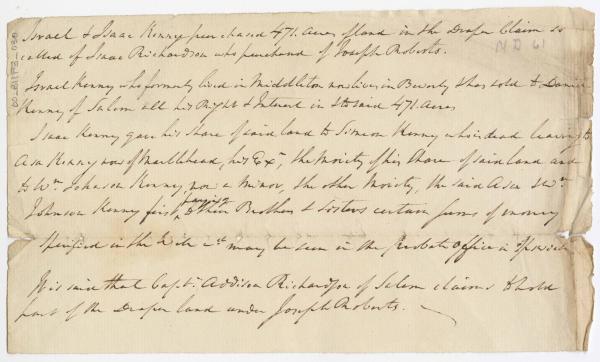 Israel & Isaac Kenny purchased 471. Acres of land in the Draper Claim so
called of Isaac Richardson who purchased of Joseph Roberts.
ND 61
Israel Kenny who formerly lived in Middleton now lives in Beverly & has sold to Daniel
Kenny of Salem all his Right & Interest in the said 471. Acres
Isaac Kenny gave his Share of said land to Simeon Kenny who is dead leaving to
Asa Kenny now of Marblehead, his Exr., the Moiety of his Share of said land and
to Wm. Johnson Kenny, now a Minor, the other Moiety, the said Asa & Wm.
Johnson Kenny first paying to their Brothers & Sisters certain sums of money
specified in the Will wh. may be seen in the Probate Office in Ipswich
It is said that Capt. Addison Richardson of Salem claims to hold
part of the Draper land under Joseph Roberts.